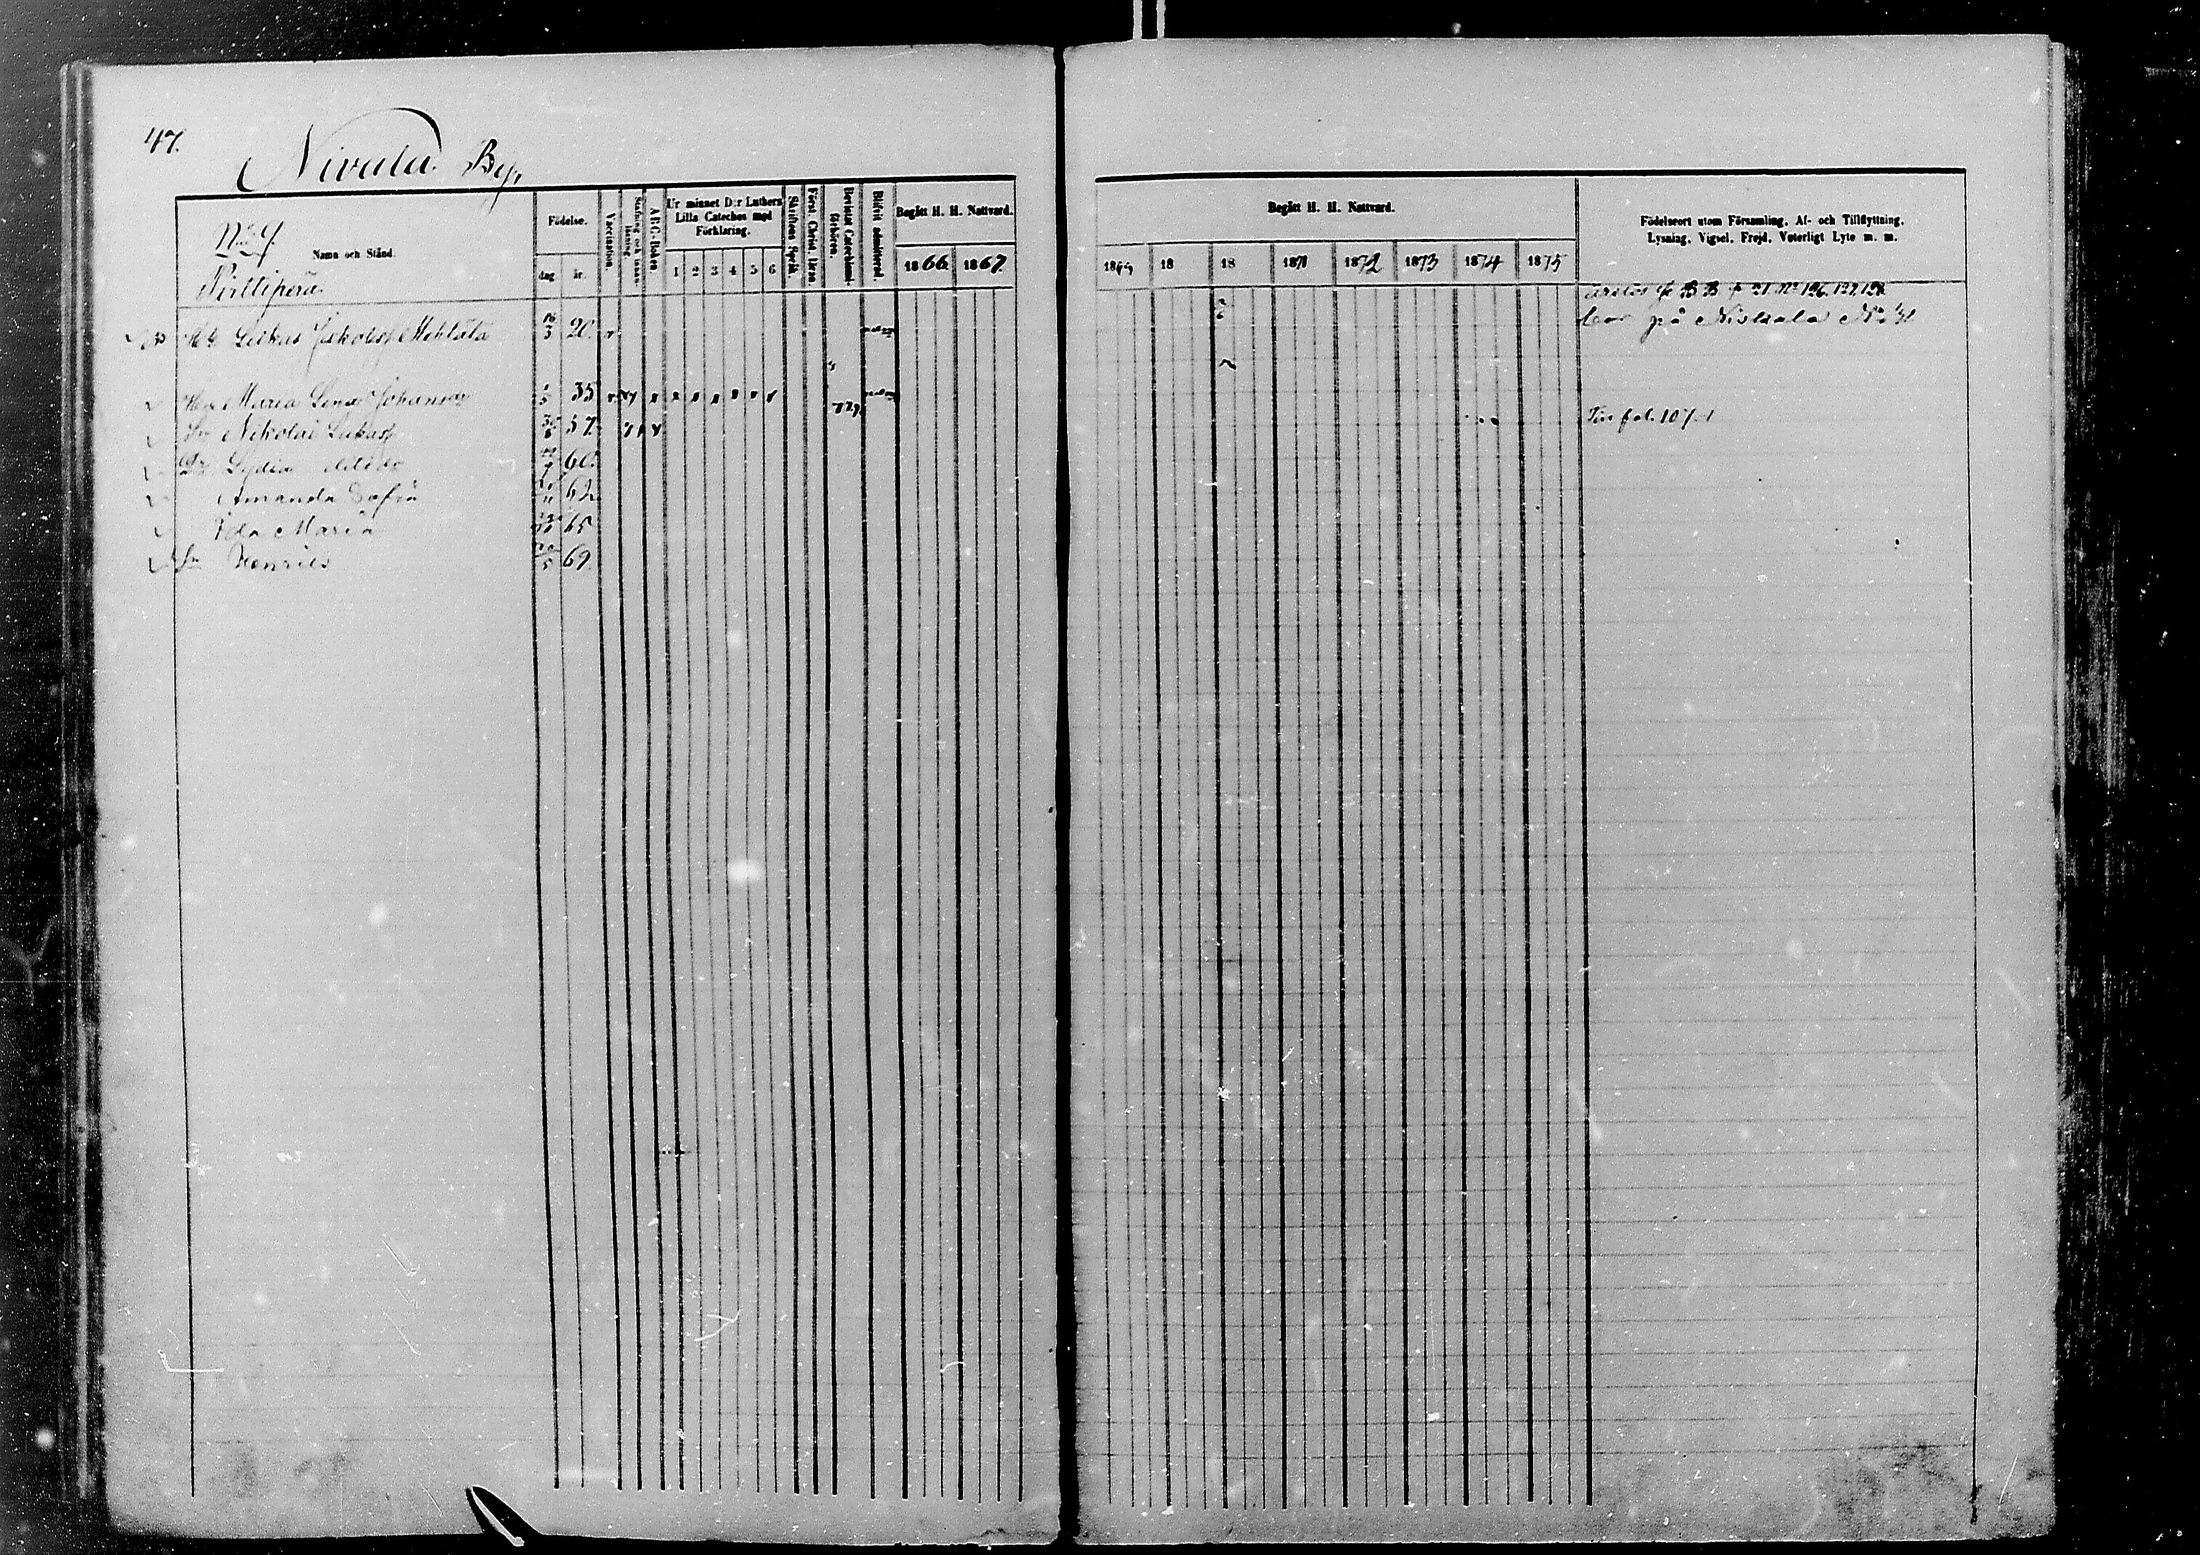 47.
Nivala By,
No 9.
Namn och Stånd.
Födelse.
dag
år.
Vaccination.
Stafning och innanläsning.
A B C-Boken
Ur minnet D:r Luthers Lilla Cateches med Förklaring.
1 2 3 4 5 6
Skriftens Språk.
Först. Christ. läran.
Bevistat Catechismiförhören.
Blifvit admitterad.
Begått H. H. Nattvard.
1866. 1867.
Lukas Jakobss Mehtälä 16/3 20.
Maria Lena Johansdr 35
Sn Nikolai Lukass 57.
Dr Lydia 60.
Amanda Sofia 62
Ida Maria 65
Sn Henrik 69.
Begått H. H. Nattvard.
1869 18 18 1871 1872 1873 1874 1875
Födelseort utom Församling, Af- och Tillflyttning, Lysning, Vigsel, Frejd, Veterligt Lyte m. m.
B B p 21 No 196, 197, 198
bor på Niskala No 41